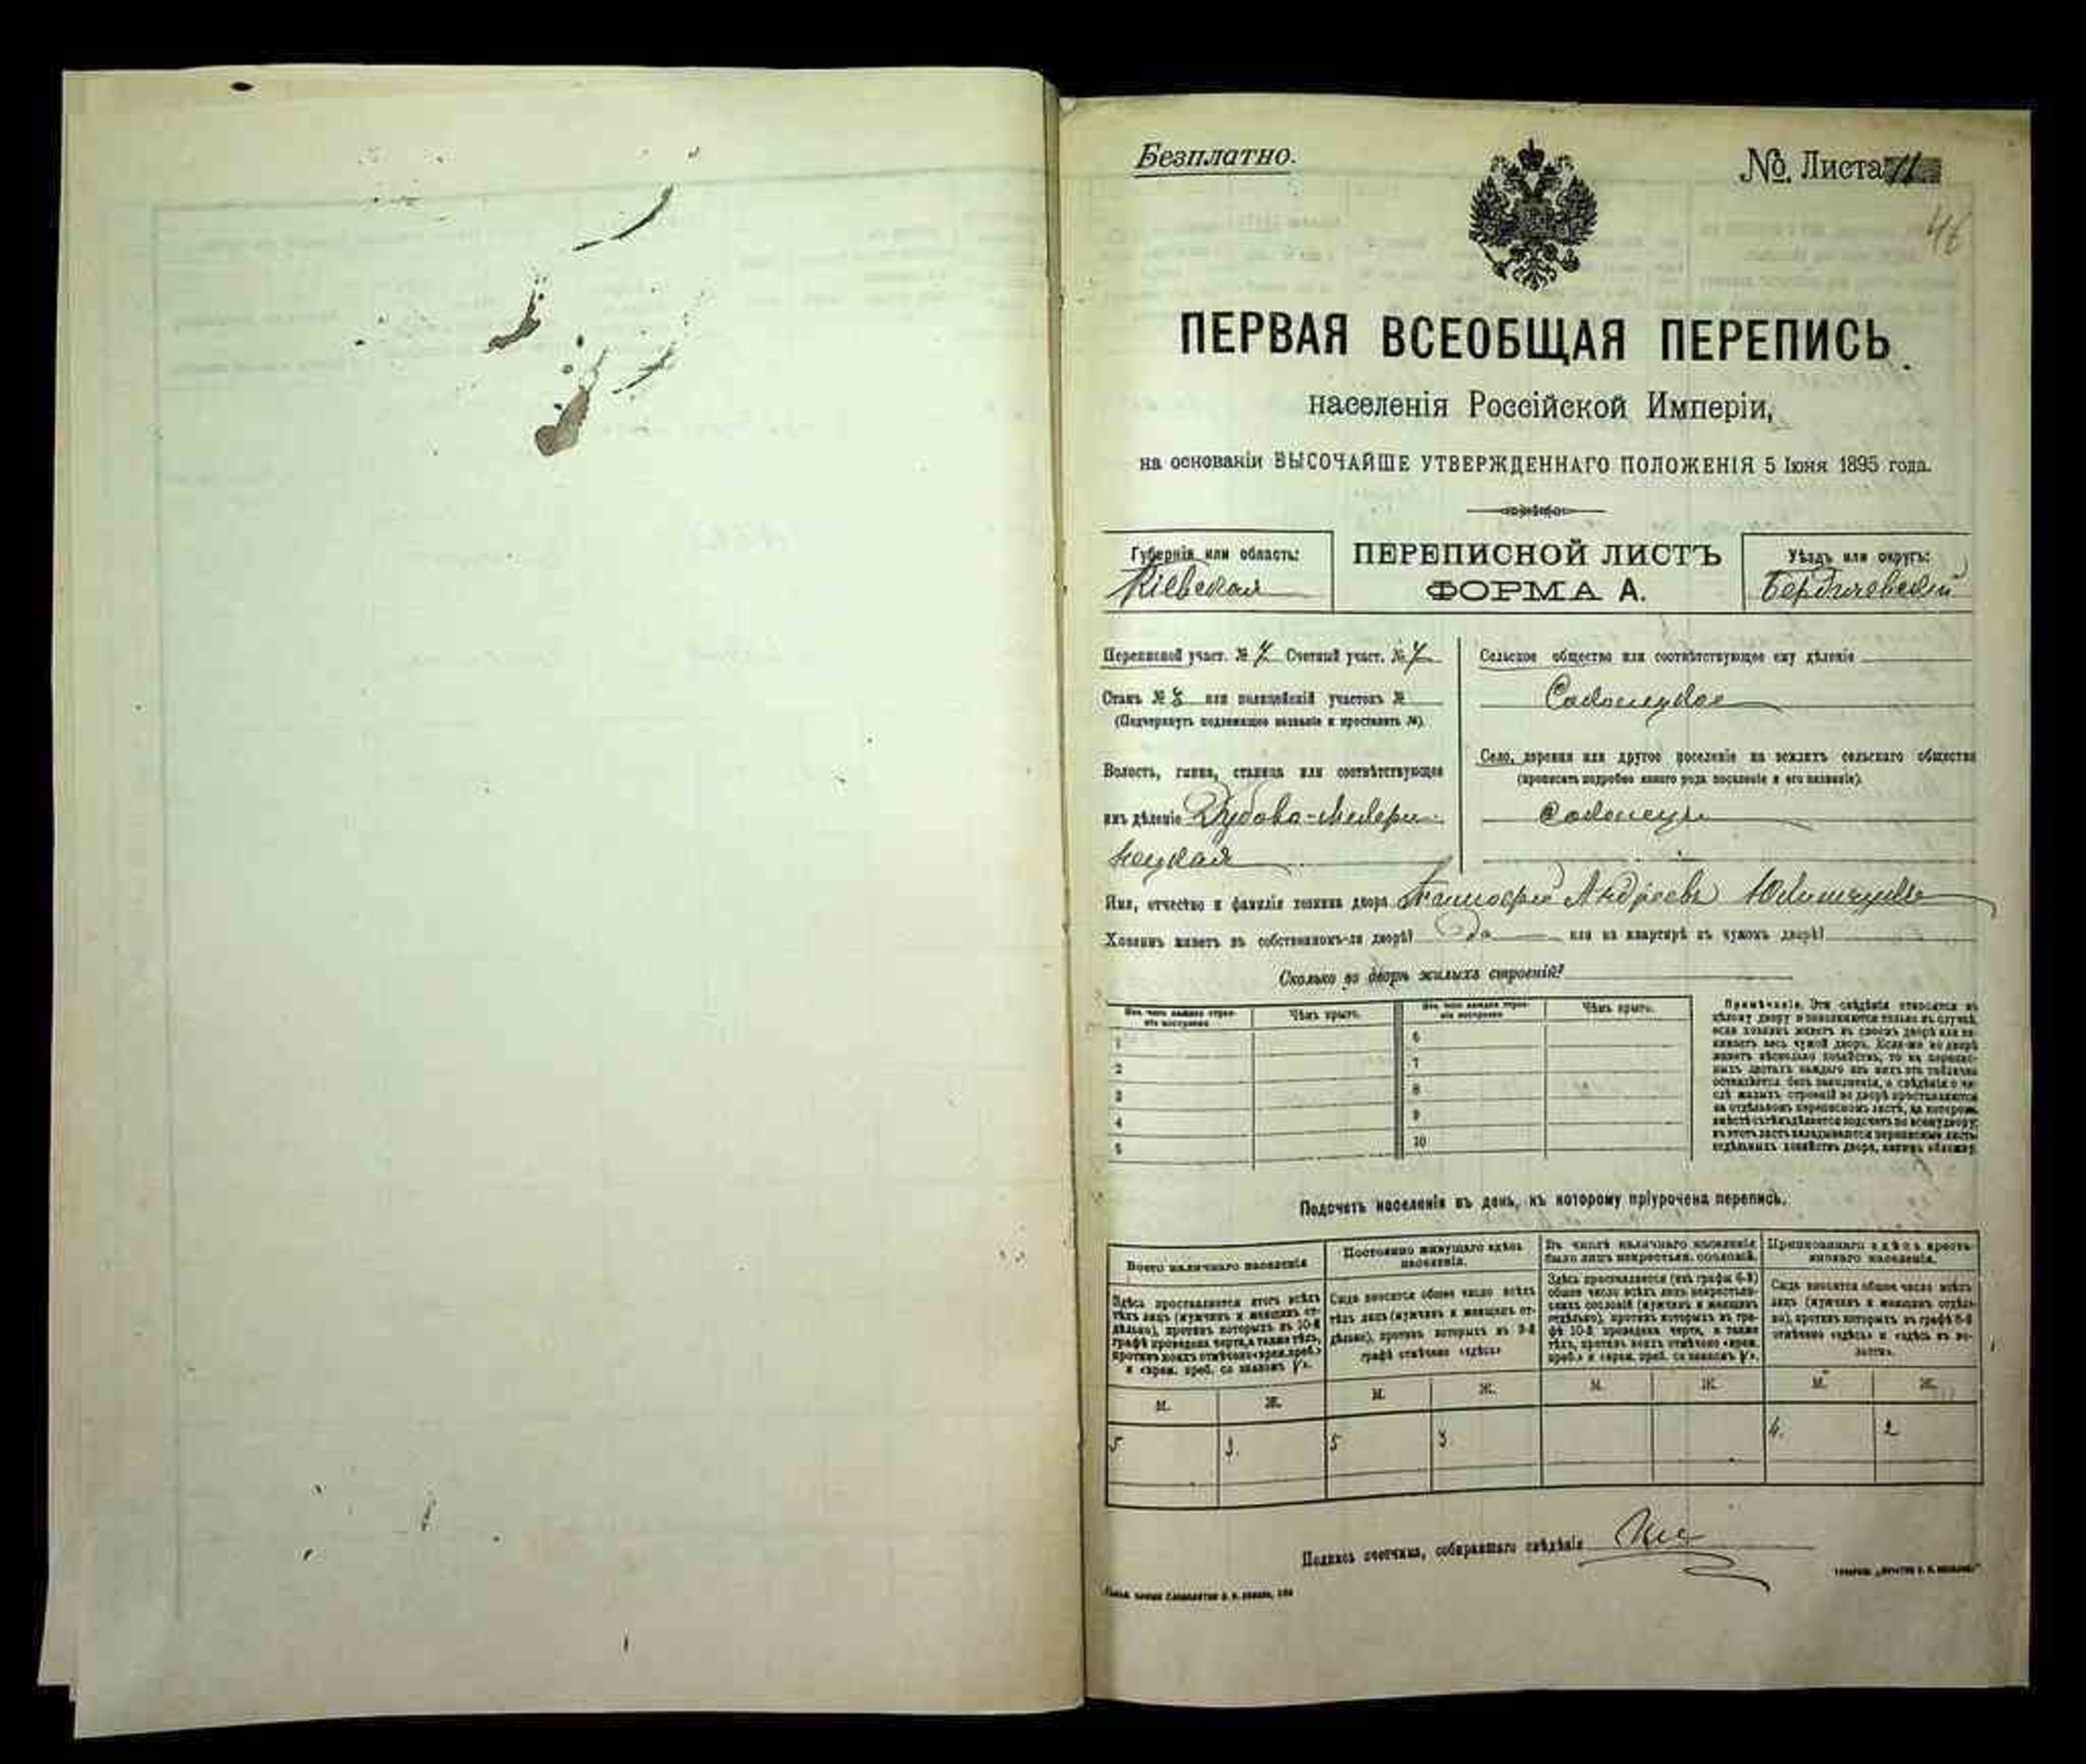 Безплатно.
№ Листа 11
46
ПЕРВАЯ ВСЕОБЩАЯ ПЕРЕПИСЬ
населенія Россійской Имперіи,
на основаніи ВЫСОЧАЙШЕ УТВЕРЖДЕННАГО ПОЛОЖЕНІЯ 5 Іюня 1895 года.
Губернія или область:
Кіевская
ПЕРЕПИСНОЙ ЛИСТЪ
ФОРМА А.
Уѣздъ или округъ:
Бердичевскій
Переписной участ. № 7 Счетный участ. № 7
Станъ № 3 или полицейскій участокъ №
(Подчеркнуть подлежащее названіе и проставить №).
Волость, гмина, станица или соотвѣтствующее
имъ дѣленіе Дубово-Мехери-
нецкая
Сельское общество или соотвѣтствующее ему дѣленіе
Солонецкое
Село, деревня или другое поселеніе на земляхъ сельскаго общества
(прописать подробно какого рода поселеніе и его названіе).
Солонецъ
Имя, отчество и фамилія хозяина двора Андреевъ
Хозяинъ живетъ въ собственномъ-ли дворѣ? Да или на квартирѣ въ чужомъ дворѣ?
Сколько во дворѣ жилыхъ строеній?
Изъ чего каждое строе-
ніе построено
Чѣмъ крыто.
Изъ чего каждое строе-
ніе построено
Чѣмъ крыто.
1
2
3
4
5
6
7
8
9
10
Примѣчаніе. Эти свѣдѣнія относятся къ
цѣлому двору и заполняются только въ случаѣ,
если хозяинъ живетъ въ своемъ дворѣ или за-
нимаетъ весь чужой дворъ. Если-же во дворѣ
живетъ нѣсколько хозяйствъ, то на перепис-
ныхъ листахъ каждаго изъ нихъ эта табличка
оставляется безъ заполненія, а свѣдѣнія о чи-
слѣ жилыхъ строеній во дворѣ проставляются
на отдѣльномъ переписномъ листѣ, на которомъ
вмѣстѣ съ тѣмъ дѣлается подсчетъ по всему двору;
въ этотъ листъ вкладываются переписные листы
отдѣльныхъ хозяйствъ двора, какъ въ обложку.
Подсчетъ населенія въ день, къ которому пріурочена перепись.
Всего наличнаго населенія
Здѣсь проставляется итогъ всѣхъ
тѣхъ лицъ (мужчинъ и женщинъ от-
дѣльно), противъ которыхъ въ 10-й
графѣ проведена черта, а также тѣхъ,
противъ коихъ отмѣчено «врем. преб.»
Постоянно живущаго здѣсь
населенія.
Сюда вносится общее число всѣхъ
тѣхъ лицъ (мужчинъ и женщинъ от-
дѣльно), противъ которыхъ въ 9-й
графѣ отмѣчено «здѣсь»
Въ числѣ наличнаго населенія
было лицъ некрестьян. сословій.
Здѣсь проставляется (изъ графы 6-й)
общее число всѣхъ лицъ некрестьян-
скихъ сословій (мужчинъ и женщинъ
отдѣльно), противъ которыхъ въ гра-
фѣ 10-й проведена черта, а также
тѣхъ, противъ коихъ отмѣчено «врем.
Приписаннаго здѣсь кресть-
янскаго населенія.
Сюда вносится общее число всѣхъ
лицъ (мужчинъ и женщинъ отдѣль-
но), противъ которыхъ въ графѣ 8-й
отмѣчено «здѣсь» и «здѣсь въ во-
лости».
М. Ж. М. Ж. М. Ж. М. Ж.
5 3. 5 3 4. 2
Подпись счетчика, собиравшаго свѣдѣнія